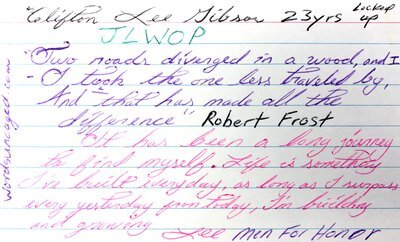 "Clifton Lee Gibson 23yrs Locked up
JLWOP
"Two roads diverged in a wood, and I
- I took the one less traveled by,
And that has made all the
difference" Robert Frost
"It has been a long journey
to find myself. Life is something
I've built everyday, as long as I surpass
every yesterday from today, I'm building
and growing
Lee Men For Honor
wordsuncaged.com